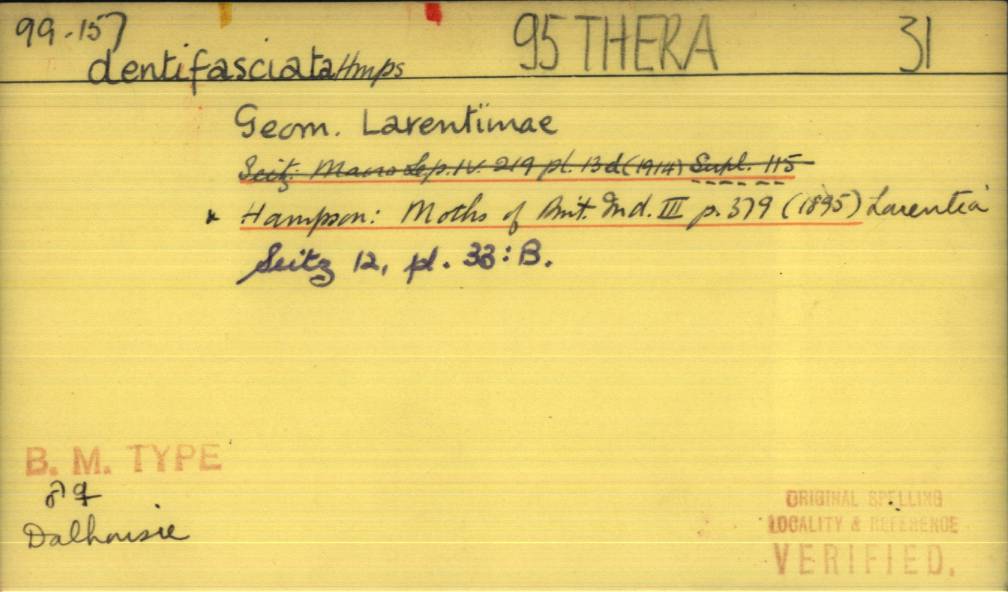 99-157 95 THERA 31
dentifasciata Hmps
Geom. Larentiinae
Seitz: Macro Lep. IV. 219 pl. 13d (1914) Supl. 115
* Hampson: Moths of Brit. Ind. III p. 379 (1895) Larentia
Seitz 12, pl. 33: B.
B. M. TYPE
♂ ♀
Dalhousie
ORIGINAL SPELLING
LOCALITY & REFERENCE
VERIFIED.